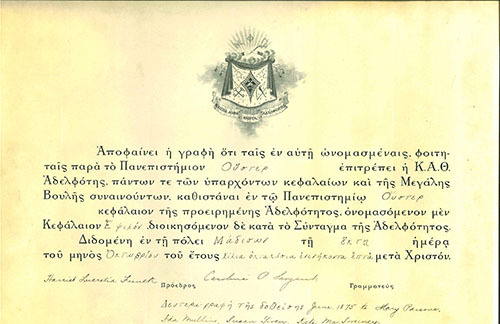 Ἀποφαίνει ἡ γραφὴ ὅτι ταῖς ἐν αὐτῇ ὠνομασμέναις, φοιτη-
ταῖς παρὰ τὸ Πανεπιστήμιον Οὔστερ ἐπιτρέπει ἡ Κ.Α.Θ.
Ἀδελφότης, πάντων τε τῶν ὑπαρχόντων κεφαλαίων καὶ τῆς Μεγάλης
Βουλῆς συναινούντων, καθιστάναι ἐν τῷ Πανεπιστημίῳ Οὔστερ
κεφάλαιον τῆς προειρημένης Ἀδελφότητος, ὀνομασόμενον μὲν
Κεφάλαιον Ἐψιλόν, διοικησόμενον δὲ κατὰ τὸ Σύνταγμα τῆς Ἀδελφότητος.
Διδομένη ἐν τῇ πόλει Μάδισων τῇ ἕκτῃ ἡμέρᾳ
τοῦ μηνὸς Ὀκτωβρίου τοῦ ἔτους χίλια ὀκτακόσια ἑπτὰ μετὰ Χριστόν.
Harriet Lucretia Caroline P. Sargent
Πρόεδρος Γραμματεύς
Δευτέρα γραφὴ τῆς δοθείσης June 1875 to Mary Parsons,
Ida Mullins, Susan Kate